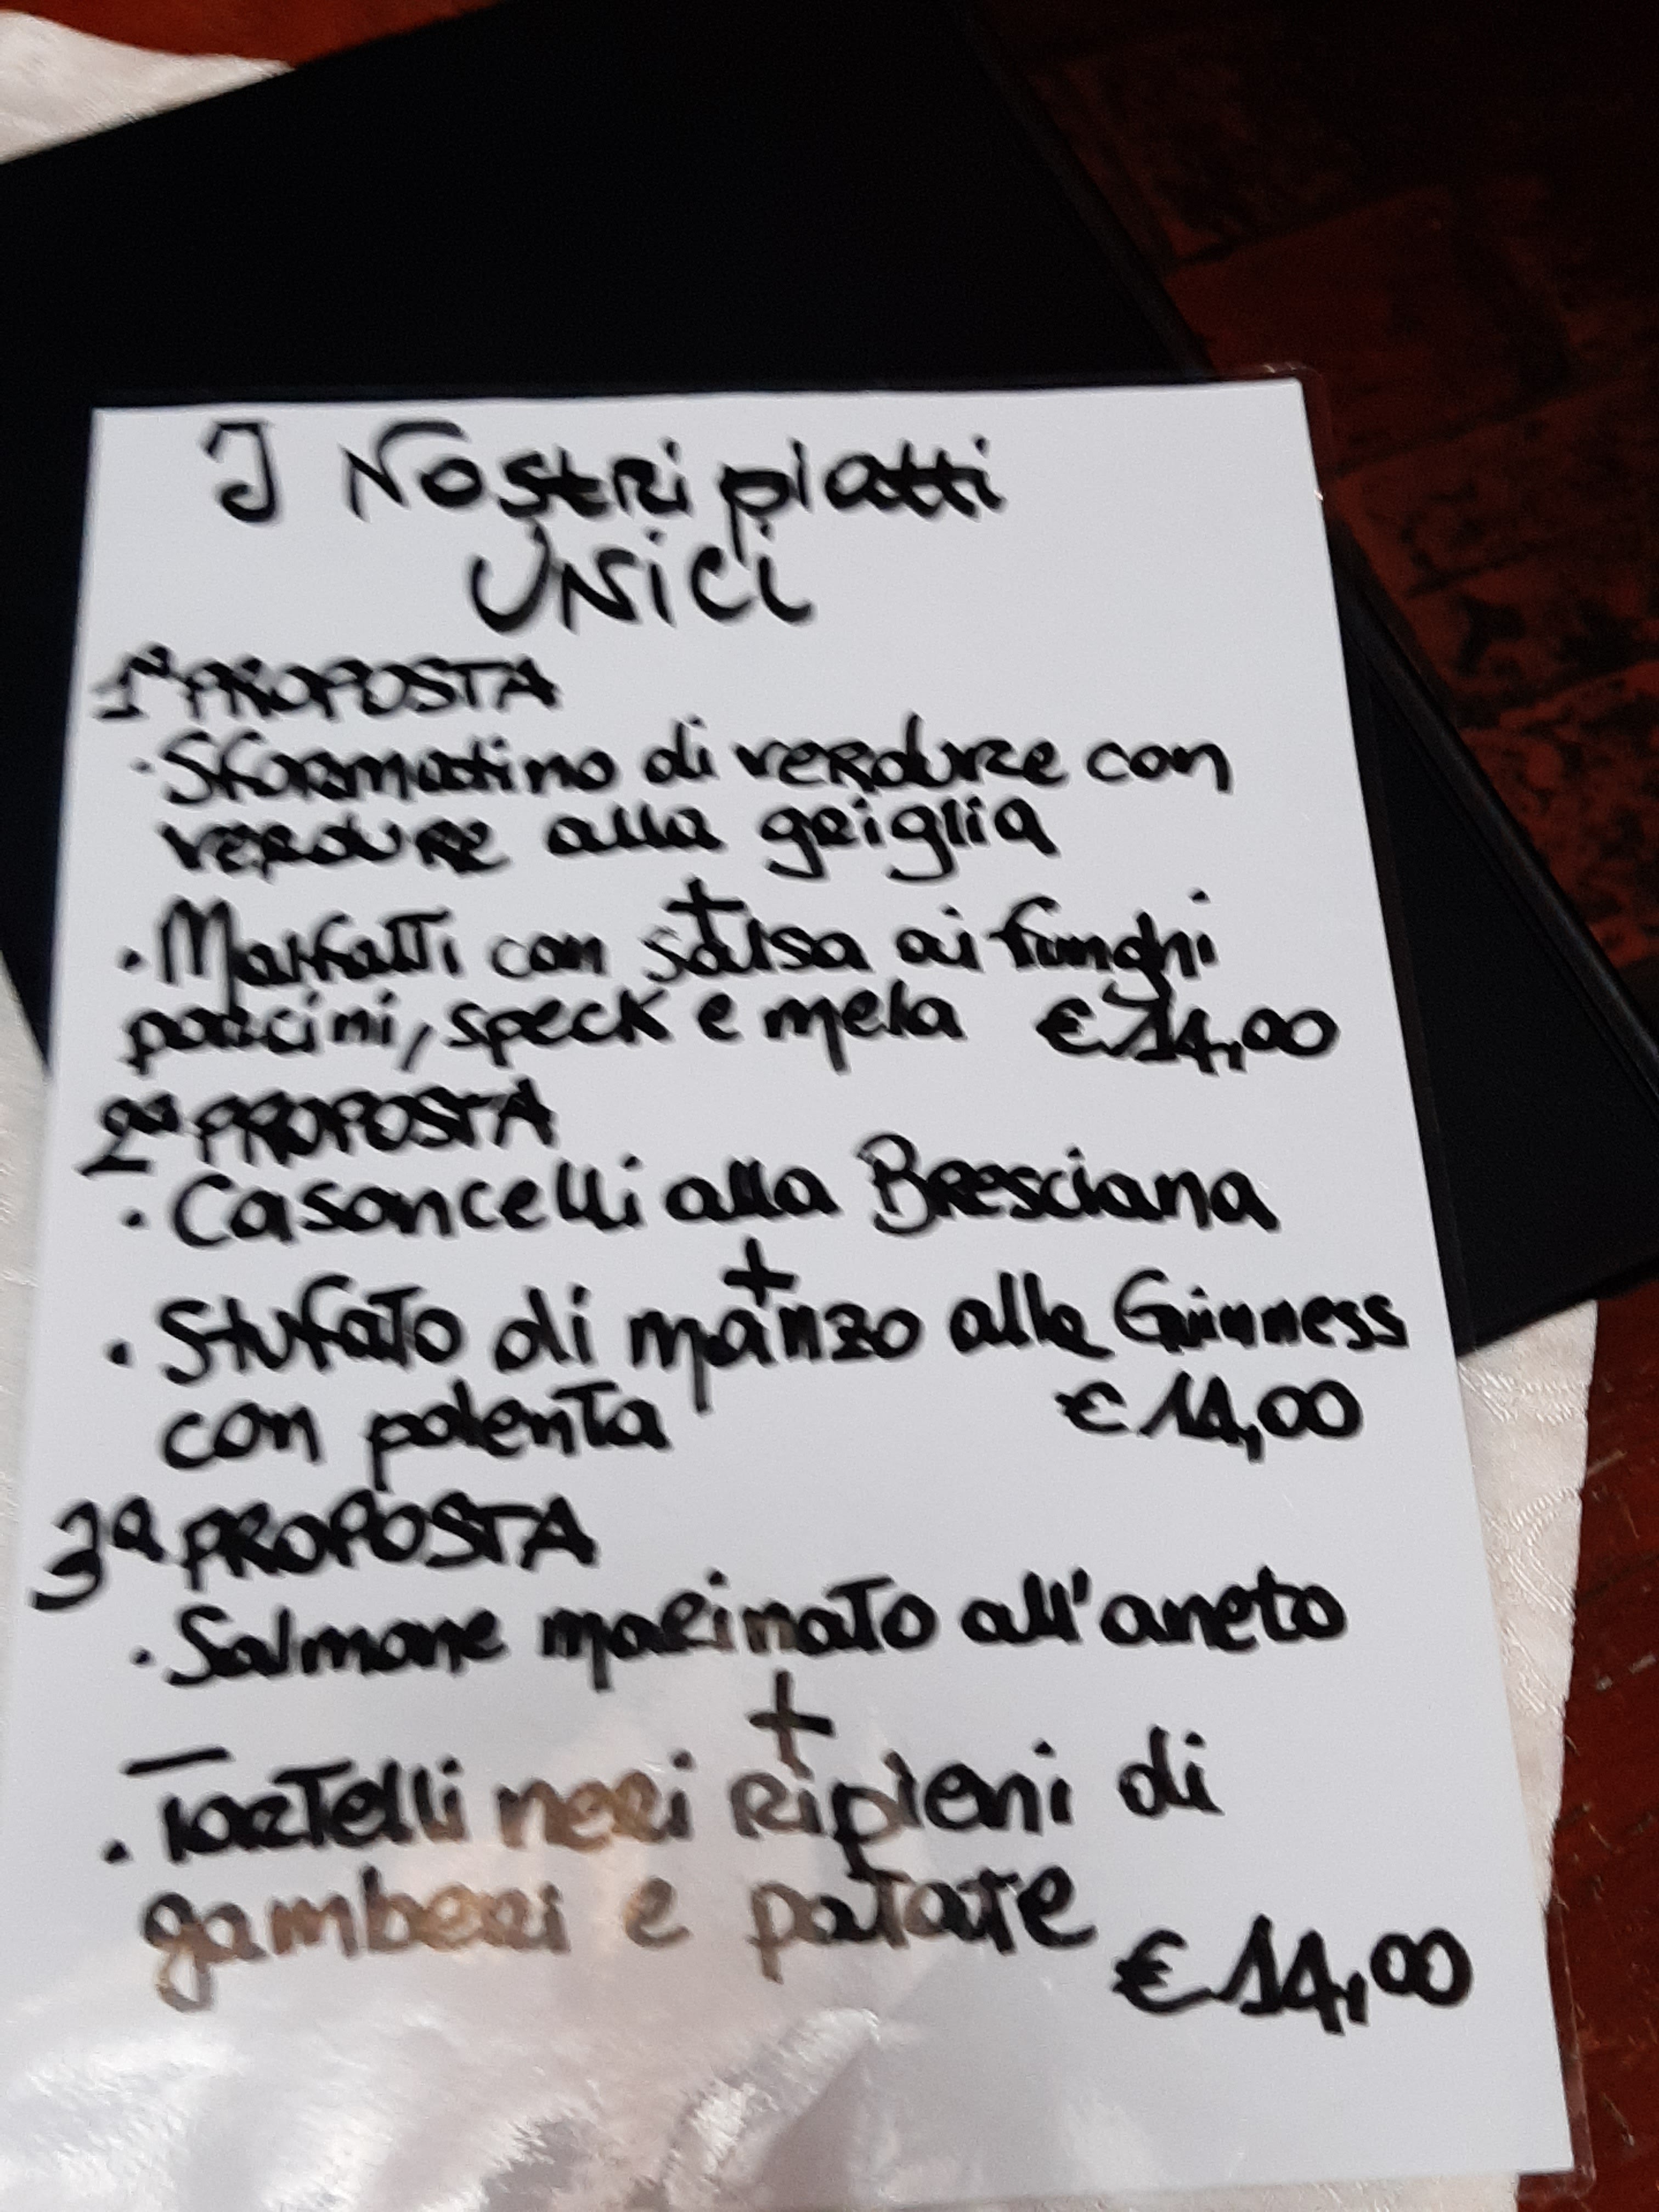 I Nostri piatti
UNICI
1ª PROPOSTA
· Sformatino di verdure con
verdure alla griglia
+
· Malfatti con salsa ai funghi
porcini, speck e mela € 14,00
2ª PROPOSTA
· Casoncelli alla Bresciana
+
· Stufato di manzo alla Guinness
con polenta € 14,00
3ª PROPOSTA
· Salmone marinato all'aneto
+
· Tortelli neri ripieni di
gamberi e patate
€ 14,00